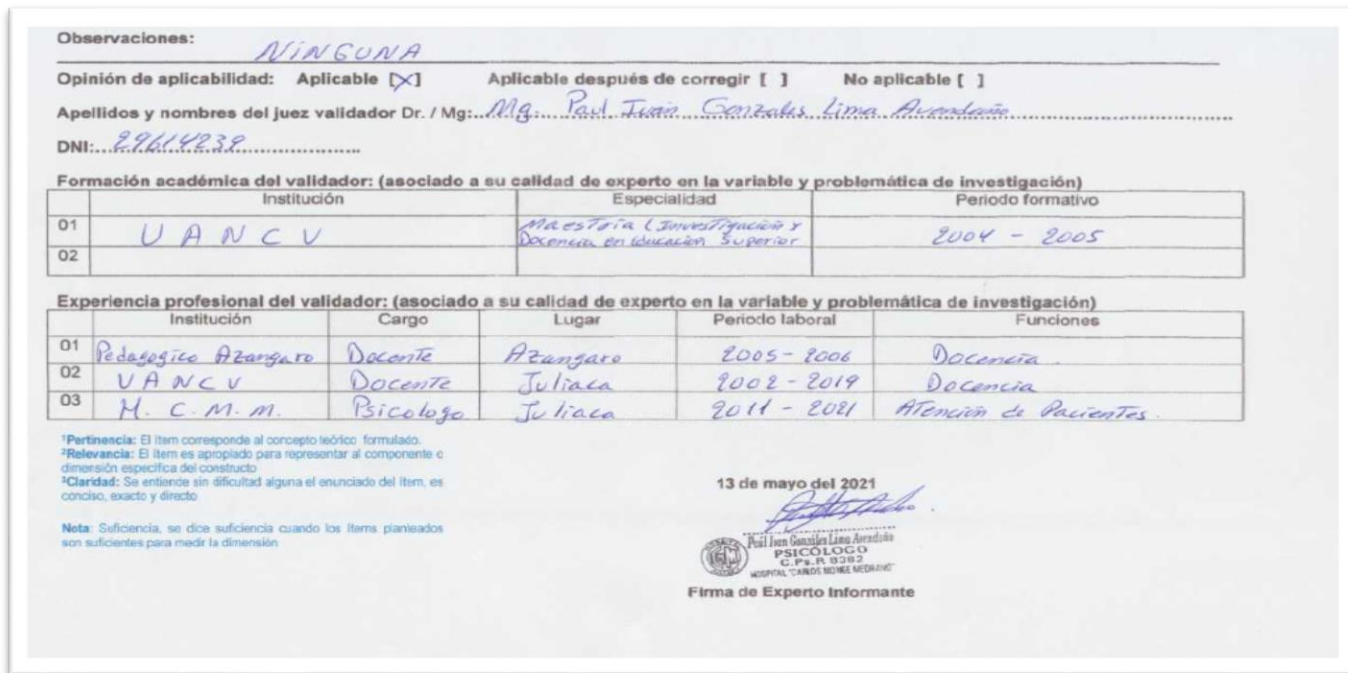 Observaciones: NINGUNA
Opinión de aplicabilidad: Aplicable [X] Aplicable después de corregir [ ] No aplicable [ ]
Apellidos y nombres del juez validador Dr. / Mg: Mg. Paul Iván Gonzales Lima Avendaño
DNI: 29614239
Formación académica del validador: (asociado a su calidad de experto en la variable y problemática de investigación)
Institución Especialidad Periodo formativo
01 UANCV Maestria (Investigación y Docencia en Educación Superior 2004 - 2005
02
Experiencia profesional del validador: (asociado a su calidad de experto en la variable y problemática de investigación)
Institución Cargo Lugar Periodo laboral Funciones
01 Pedagogico Azangaro Docente Azangaro 2005 - 2006 Docencia.
02 UANCV Docente Juliaca 2002 - 2019 Docencia
03 H. C. M. M. Psicologo Juliaca 2011 - 2021 Atención de Pacientes.
¹Pertinencia: El ítem corresponde al concepto teórico formulado.
²Relevancia: El ítem es apropiado para representar al componente o
dimensión específica del constructo
³Claridad: Se entiende sin dificultad alguna el enunciado del ítem, es
conciso, exacto y directo
Nota: Suficiencia, se dice suficiencia cuando los ítems planteados
son suficientes para medir la dimensión
13 de mayo del 2021
Paúl Ivan Gonzáles Lima Avendaño
PSICÓLOGO
C.Ps.P. 8382
HOSPITAL "CARLOS MONGE MEDRANO"
Firma de Experto Informante